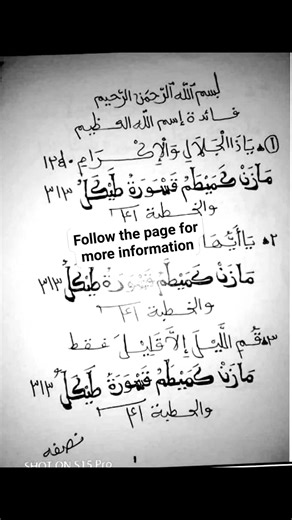 بسم الله الرّحمٰن الرّحيم
فائدة إسم الله العظيم
① يَاذَالْجَلَالِ وَالْإِكْرَامِ ١٢٤٠
مَازَنْ كَمَيْطَمْ قَسْوَرَةُ طَيْكَلُ ٣١٣
والخطبة ٤١
Follow the page for
more information
٢ يَاأَيُّهَا
مَازَنْ كَمَيْطَمْ قَسْوَرَةُ طَيْكَلُ ٣١٣
والخطبة ٤١
٣ قُمِ اللَّيْلَ إِلَّا قَلِيْلَ فقط
مَازَنْ كَمَيْطَمْ قَسْوَرَةُ طَيْكَلُ ٣١٣
والخطبة ٤١
نصفه
١
SHOT ON S15 Pro